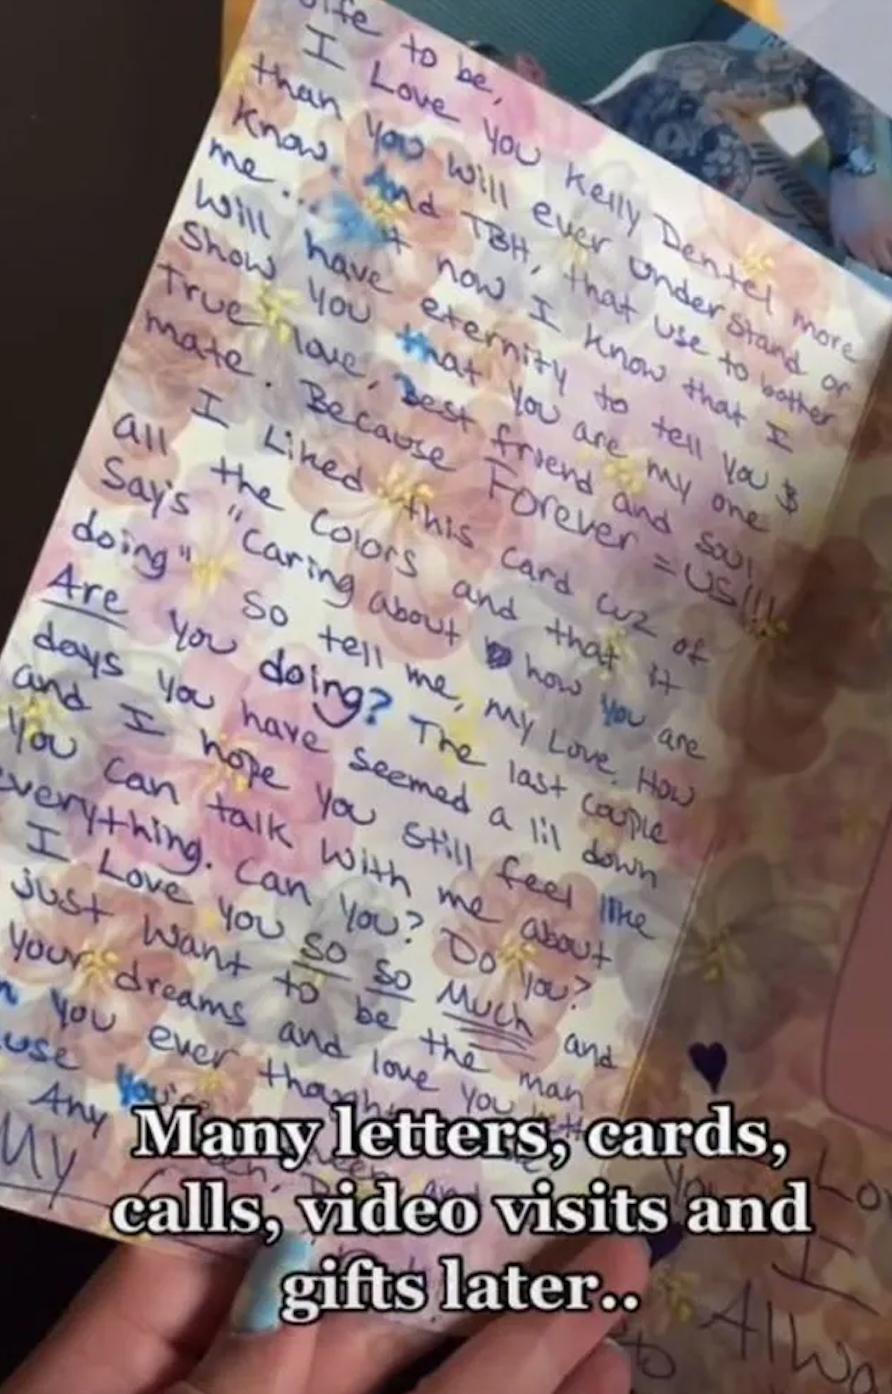 to be,
I Love you Kelly Dentel more
than you will ever understand or
know. And TBH, that use to bother
me... now I know that I
will have eternity to tell you &
show you that you are my one
true love, best friend and soul
mate. Because Forever = US!!!
I Liked this card cuz of
all the colors and that it
Say's "Caring about how you are
doing" So tell me, my Love. How
Are you doing? The last couple
days you have seemed a lil down
and I hope you still feel like
You can talk with me about
everything. Can you? Do you?
I Love you so so Much and
just want to be the man
your dreams and love you
you ever
You're
Any
My
Many letters, cards,
calls, video visits and
gifts later..
I